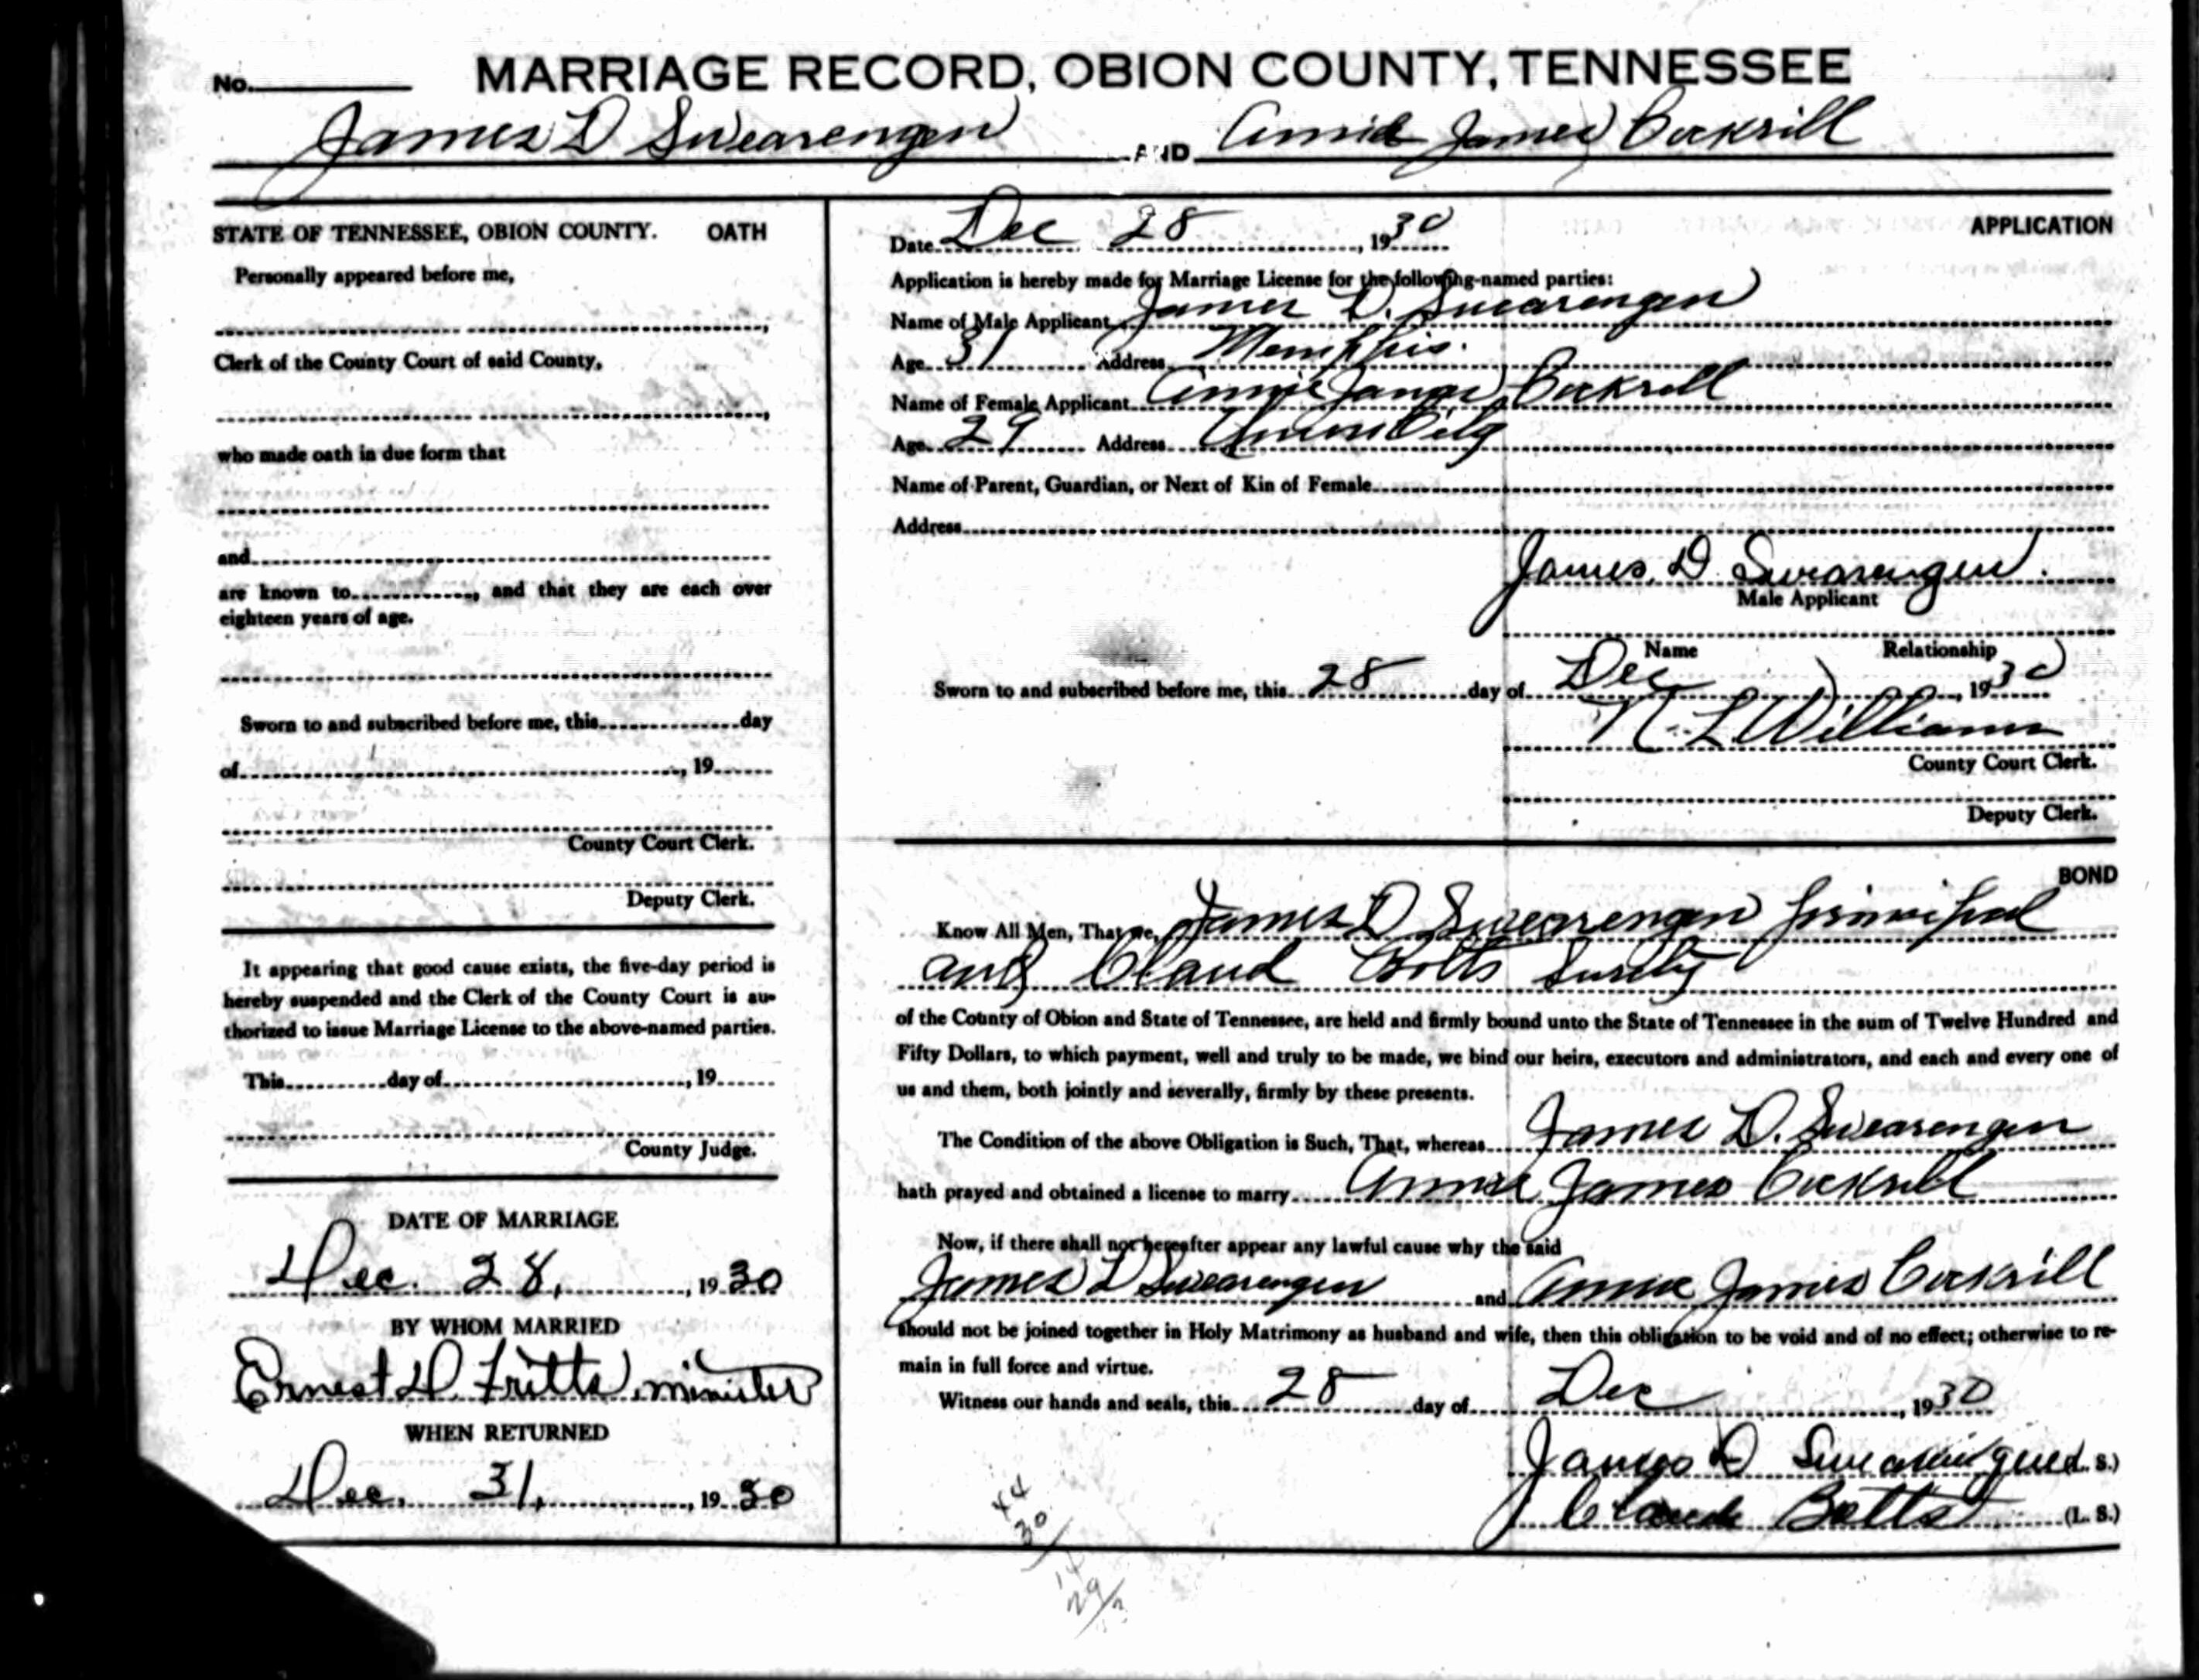 MARRIAGE RECORD, OBION COUNTY, TENNESSEE
No.
James D Swearengen AND Annie James Cockrill
STATE OF TENNESSEE, OBION COUNTY. OATH
Personally appeared before me,
Clerk of the County Court of said County,
who made oath in due form that
and
are known to , and that they are each over
eighteen years of age.
Sworn to and subscribed before me, this day
of , 19
County Court Clerk.
Deputy Clerk.
It appearing that good cause exists, the five-day period is
hereby suspended and the Clerk of the County Court is au-
thorized to issue Marriage License to the above-named parties.
This day of , 19
County Judge.
DATE OF MARRIAGE
Dec. 28, , 1930
BY WHOM MARRIED
Ernest D. Fritts, minister
WHEN RETURNED
Dec. 31, , 1930
APPLICATION
Date Dec 28 , 1930
Application is hereby made for Marriage License for the following-named parties:
Name of Male Applicant James D. Swearengen
Age 31 Address Memphis.
Name of Female Applicant Annie James Cockrill
Age 29 Address Union City
Name of Parent, Guardian, or Next of Kin of Female
Address
James. D. Swearengen.
Male Applicant
Name Relationship
Sworn to and subscribed before me, this 28 day of Dec , 1930
N. L Williams
County Court Clerk.
Deputy Clerk.
BOND
Know All Men, That we, James D Swearengen principal
and Claud Botts Surety
of the County of Obion and State of Tennessee, are held and firmly bound unto the State of Tennessee in the sum of Twelve Hundred and
Fifty Dollars, to which payment, well and truly to be made, we bind our heirs, executors and administrators, and each and every one of
us and them, both jointly and severally, firmly by these presents.
The Condition of the above Obligation is Such, That, whereas James D. Swearengen
hath prayed and obtained a license to marry Annie James Cockrill
Now, if there shall not hereafter appear any lawful cause why the said
James D Swearengen and Annie James Cockrill
should not be joined together in Holy Matrimony as husband and wife, then this obligation to be void and of no effect; otherwise to re-
main in full force and virtue.
Witness our hands and seals, this 28 day of Dec , 1930
James D Swearengen (L. S.)
Claude Botts (L. S.)
44
30
14
29